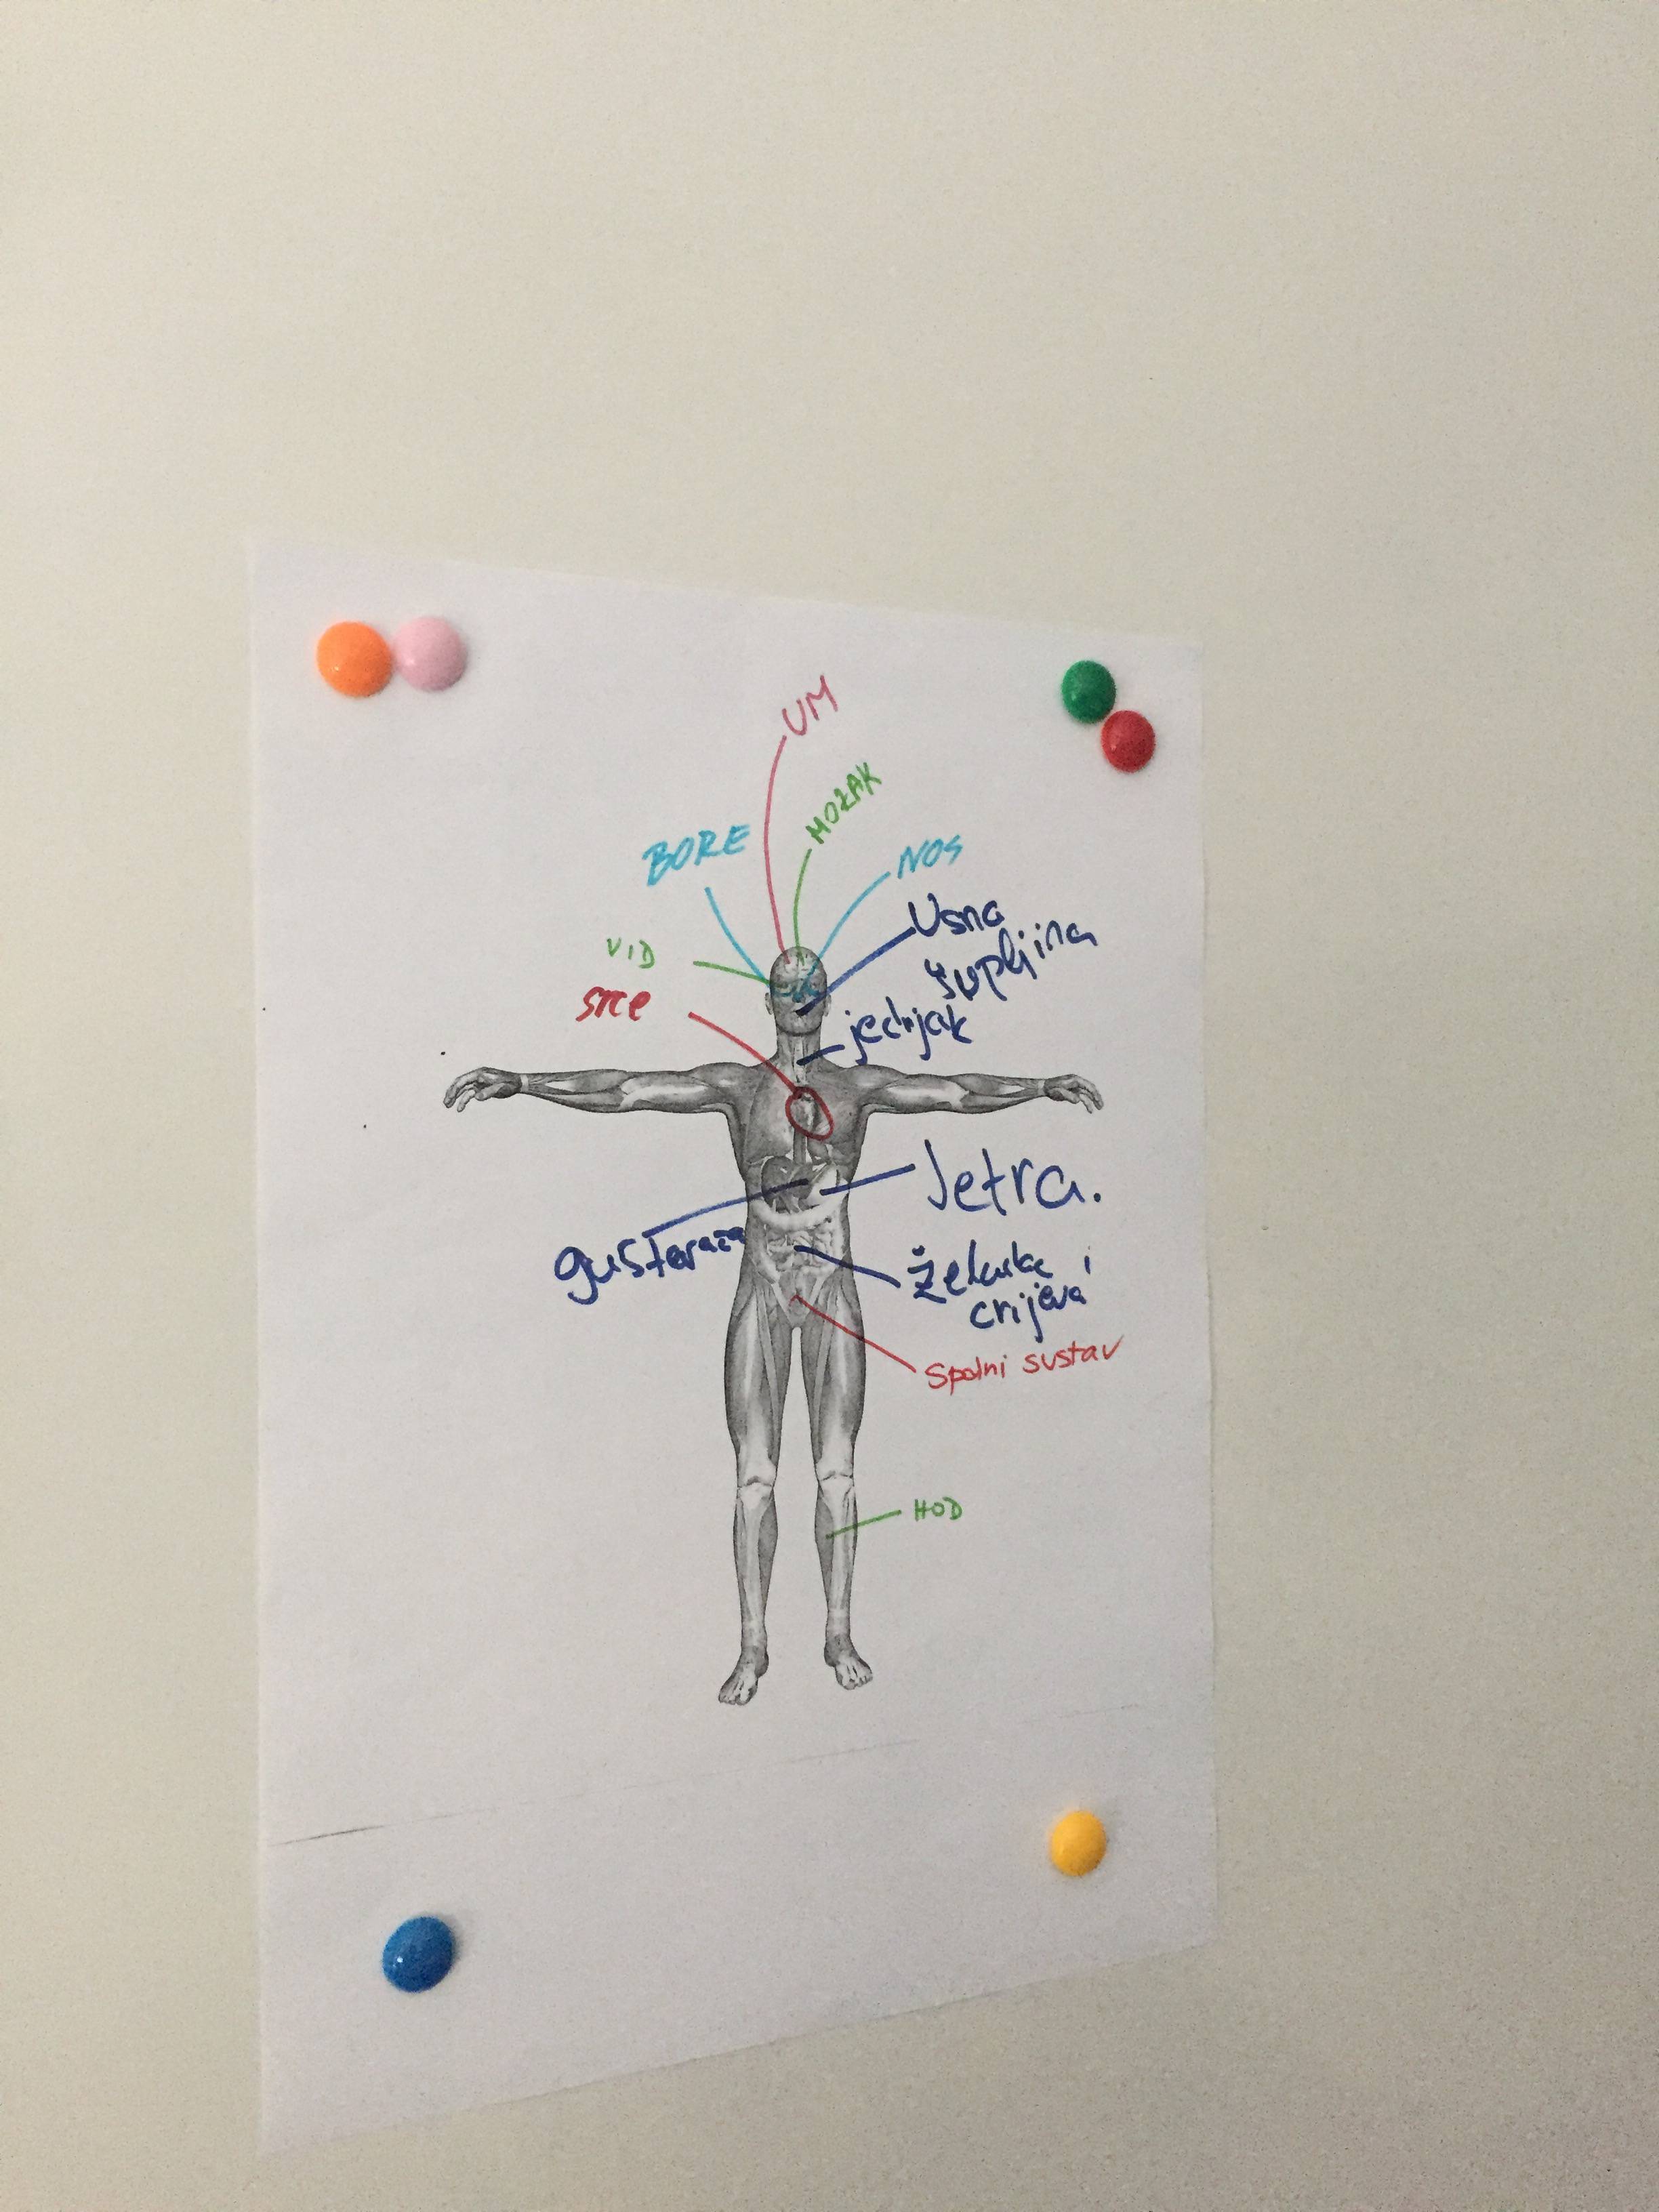 UM
MOZAK
BORE
NOS
Usna
šupljina
VID
srce
jednjak
Jetra.
gušterača
želudac i
crijeva
Spolni sustav
HOD